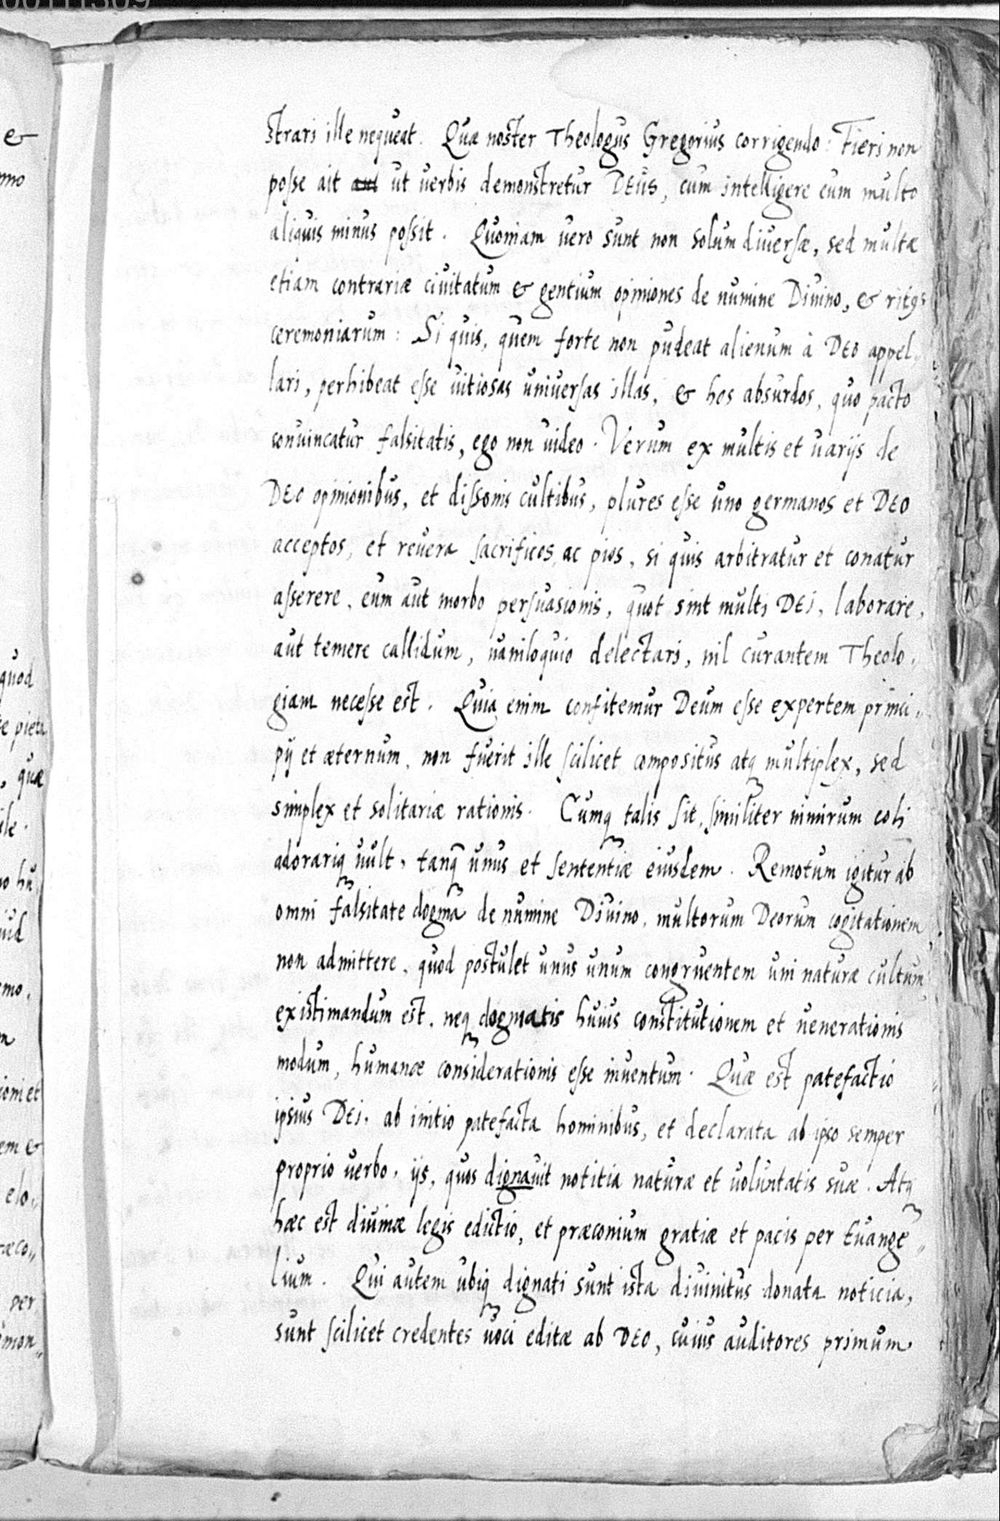 00111309
strari ille nequeat. Quæ noster Theologus Gregorius corrigendo: Fieri non
posse ait aut ut uerbis demonstretur DEUS, cum intelligere eum multo
aliquis minus possit. Quoniam uero sunt non solum diuersæ, sed multæ
etiam contrariæ ciuitatum & gentium opiniones de numine Diuino, &
ceremoniarum: Si quis, quem forte non pudeat alienum à DEO appel„
lari, perhibeat esse uitiosas uniuersas illas, & hos absurdos, quo pacto
conuincatur falsitatis, ego non uideo. Verum ex multis et uarijs de
DEO opinionibus, et dissonis cultibus, plures esse uno germanos et DEO
acceptos, et reuera sacrificos, ac pios, si quis arbitratur et conatur
asserere, eum aut morbo persuasionis, quot sint multi DEI, laborare,
aut temere callidum, uaniloquio delectari, nil curantem Theolo„
giam necesse est. Quia enim confitemur Deum esse expertem princi„
pij et æternum, non fuerit ille scilicet compositus atq multiplex, sed
simplex et solitariæ rationis. Cumq talis sit, similiter nimirum coli
adorariq uult, tanq̃ unus et sententiæ eiusdem. Remotum igitur ab
omni falsitate dogma de numine Diuino, multorum Deorum cogitationem
non admittere, quod postulet unus unum congruentem uni naturæ cultum
existimandum est, neq dogmatis huius constitutionem et uenerationis
modum, humanæ considerationis esse inuentum. Quæ est patefactio
ipsius DEI, ab initio patefacta hominibus, et declarata ab ipso semper
proprio uerbo, ijs, quos dignauit notitia naturæ et uoluntatis suæ. Atq
hæc est diuinæ legis edictio, et præconium gratiæ et pacis per Euange„
lium. Qui autem ubiq dignati sunt ista diuinitus donata noticia,
sunt scilicet credentes uoci editæ ab DEO, cuius auditores primum